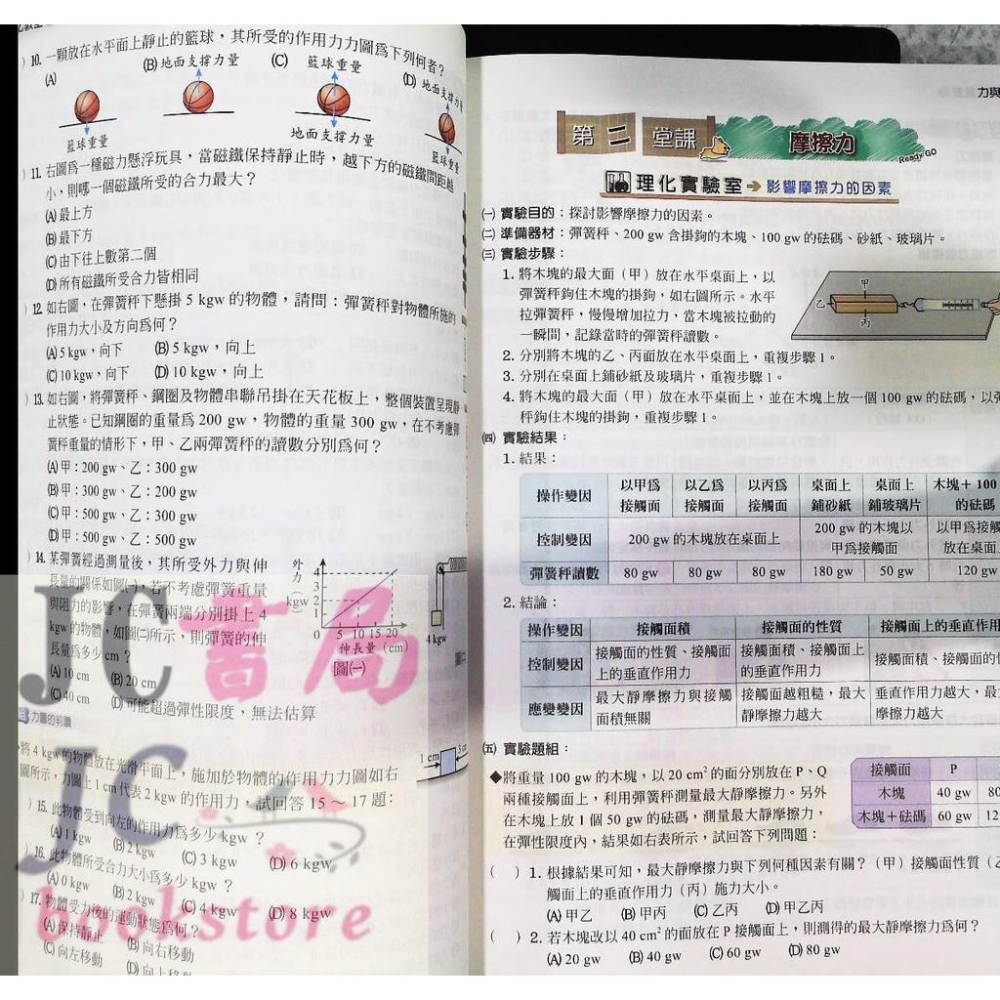 10. 一顆放在水平面上靜止的籃球，其所受的作用力力圖爲下列何者？
(A)
(B) 地面支撐力量
(C) 籃球重量
(D) 地面支撐力
籃球重量
地面支撐力量
籃球重
11. 右圖爲一種磁力懸浮玩具，當磁鐵保持靜止時，越下方的磁鐵間距越
小，則哪一個磁鐵所受的合力最大？
(A)最上方
(B)最下方
(C)由下往上數第二個
(D)所有磁鐵所受合力皆相同
12. 如右圖，在彈簧秤下懸掛 5 kgw 的物體，請問：彈簧秤對物體所施的
作用力大小及方向爲何？
(A) 5 kgw，向下 (B) 5 kgw，向上
(C) 10 kgw，向下 (D) 10 kgw，向上
13. 如右圖，將彈簧秤、鋼圈及物體串聯吊掛在天花板上，整個裝置呈現靜
止狀態。已知鋼圈的重量爲 200 gw，物體的重量 300 gw，在不考慮彈
簧秤重量的情形下，甲、乙兩彈簧秤的讀數分別爲何？
(A)甲：200 gw、乙：300 gw
(B)甲：300 gw、乙：200 gw
(C)甲：500 gw、乙：300 gw
(D)甲：500 gw、乙：500 gw
14. 某彈簧經過測量後，其所受外力與伸
長量的關係如圖(一)，若不考慮彈簧重量
與阻力的影響，在彈簧兩端分別掛上 4
kgw 的物體，如圖(二)所示，則彈簧的伸
長量爲多少 cm？
(A) 10 cm (B) 20 cm
(C) 40 cm (D)可能超過彈性限度，無法估算
外
力
(kgw)
4
3
2
1
0 5 10 15 20
伸長量 (cm)
圖(一)
4 kgw
力圖的判讀
將 4 kgw 的物體放在光滑平面上，施加於物體的作用力力圖如右
圖所示，力圖上 1 cm 代表 2 kgw 的作用力，試回答 15 ～ 17 題：
1 cm
15. 此物體受到向左的作用力爲多少 kgw？
(A) 1 kgw (B) 2 kgw (C) 3 kgw (D) 6 kgw
16. 此物體所受合力大小爲多少 kgw？
(A) 0 kgw (B) 2 kgw (C) 4 kgw (D) 8 kgw
17. 物體受力後的運動狀態爲何？
(A)保持靜止 (B)向右移動
(C)向左移動 (D)向上移動
JC書局
JC
bookstore
力與
第二堂課 摩擦力
Ready GO
理化實驗室 ➔ 影響摩擦力的因素
(一) 實驗目的：探討影響摩擦力的因素。
(二) 準備器材：彈簧秤、200 gw 含掛鉤的木塊、100 gw 的砝碼、砂紙、玻璃片。
(三) 實驗步驟：
1. 將木塊的最大面（甲）放在水平桌面上，以
彈簧秤鉤住木塊的掛鉤，如右圖所示。水平
拉彈簧秤，慢慢增加拉力，當木塊被拉動的
一瞬間，記錄當時的彈簧秤讀數。
甲
乙
丙
2. 分別將木塊的乙、丙面放在水平桌面上，重複步驟 1。
3. 分別在桌面上鋪砂紙及玻璃片，重複步驟 1。
4. 將木塊的最大面（甲）放在水平桌面上，並在木塊上放一個 100 gw 的砝碼，以彈
秤鉤住木塊的掛鉤，重複步驟 1。
(四) 實驗結果：
1. 結果：
操作變因 以甲爲接觸面 以乙爲接觸面 以丙爲接觸面 桌面上鋪砂紙 桌面上鋪玻璃片 木塊＋100 的砝碼
控制變因 200 gw 的木塊放在桌面上 200 gw 的木塊以甲爲接觸面 以甲爲接觸 放在桌面
彈簧秤讀數 80 gw 80 gw 80 gw 180 gw 50 gw 120 gw
2. 結論：
操作變因 接觸面積 接觸面的性質 接觸面上的垂直作用
控制變因 接觸面的性質、接觸面上的垂直作用力 接觸面積、接觸面上的垂直作用力 接觸面積、接觸面的
應變變因 最大靜摩擦力與接觸面積無關 接觸面越粗糙，最大靜摩擦力越大 垂直作用力越大，最 摩擦力越大
(五) 實驗題組：
◆將重量 100 gw 的木塊，以 20 cm² 的面分別放在 P、Q
兩種接觸面上，利用彈簧秤測量最大靜摩擦力。另外
在木塊上放 1 個 50 gw 的砝碼，測量最大靜摩擦力，
在彈性限度內，結果如右表所示，試回答下列問題：
接觸面 P
木塊 40 gw 80
木塊＋砝碼 60 gw 12
( ) 1. 根據結果可知，最大靜摩擦力與下列何種因素有關？（甲）接觸面性質（乙
觸面上的垂直作用力（丙）施力大小。
(A)甲乙 (B)甲丙 (C)乙丙 (D)甲乙丙
( ) 2. 若木塊改以 40 cm² 的面放在 P 接觸面上，則測得的最大靜摩擦力爲何？
(A) 20 gw (B) 40 gw (C) 60 gw (D) 80 gw